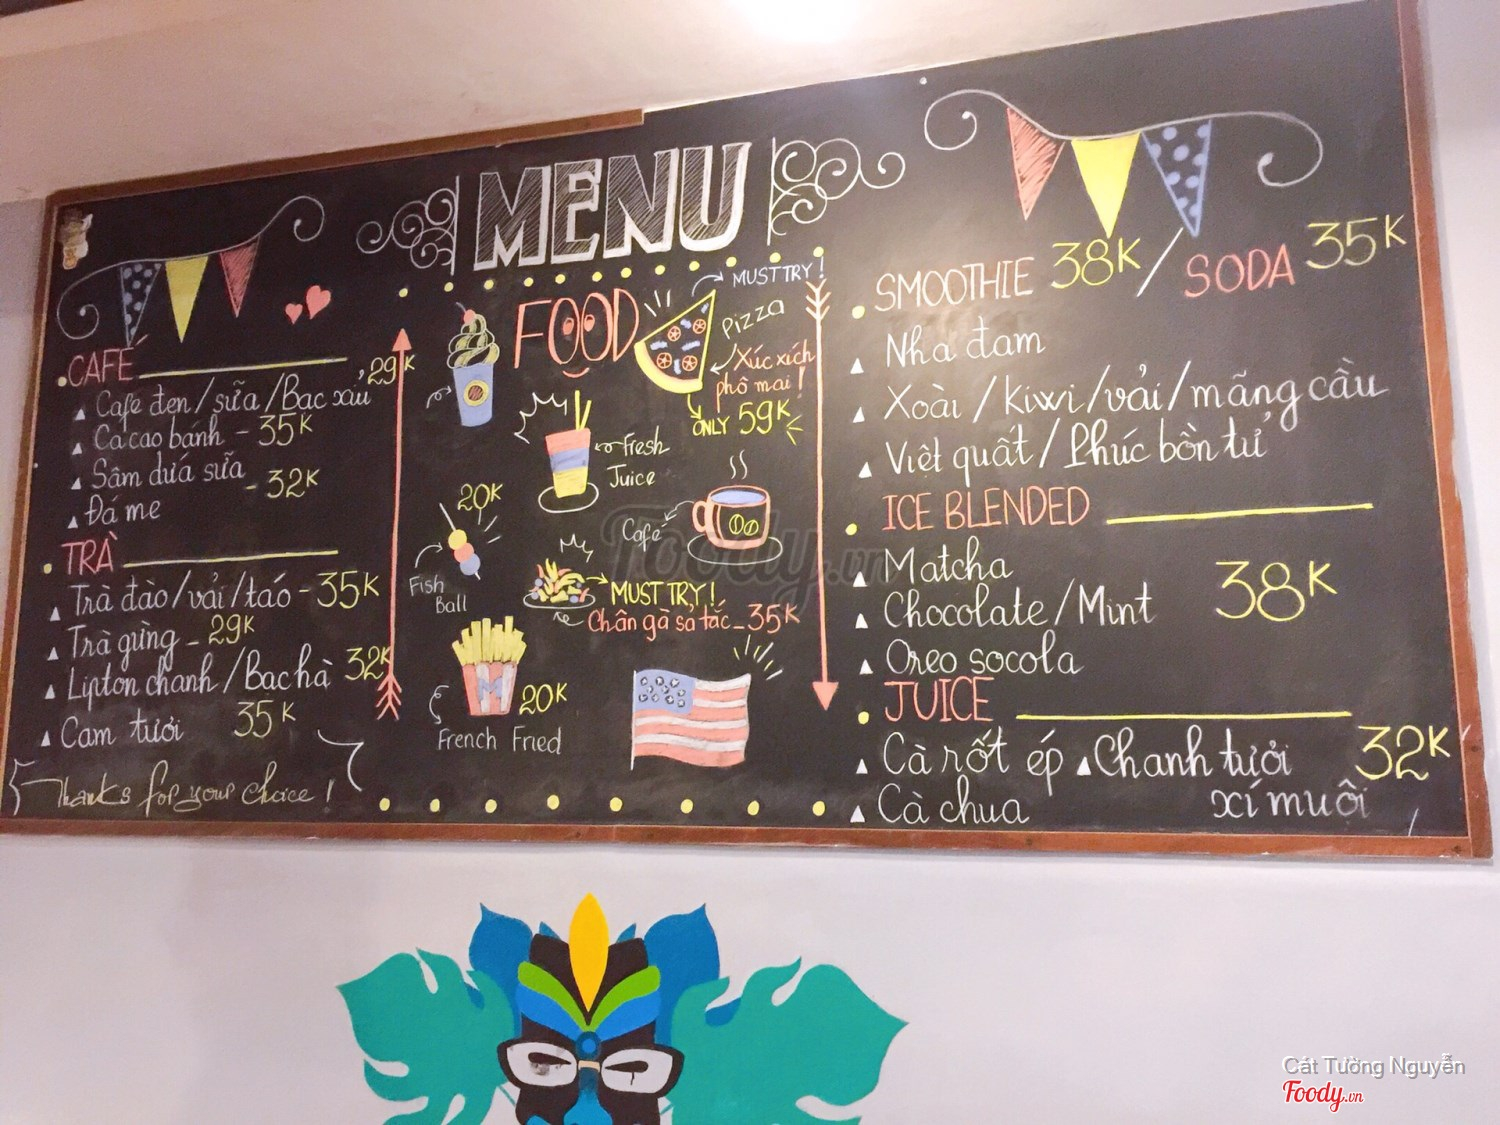 MENU
CAFÉ
Café đen/sữa/Bạc xỉu 29K
Ca cao bánh - 35K
Sâm dứa sữa
- 32K
Đá me
TRÀ
Trà đào/vải/táo - 35K
Trà gừng - 29K
Lipton chanh/Bạc hà 32K
Cam tươi 35K
Thanks for your choice!
FOOD
MUST TRY!
Pizza
Xúc xích
phô mai!
ONLY 59K
Fresh
Juice
20K
Café
Fish
Ball
MUST TRY!
Chân gà sả tắc - 35K
20K
French Fried
SMOOTHIE 38K / SODA 35K
Nha đam
Xoài/kiwi/vải/mãng cầu
Việt quất/Phúc bồn tử
ICE BLENDED
Matcha
38K
Chocolate/Mint
Oreo socola
JUICE
Cà rốt ép Chanh tươi 32K
Cà chua xí muội
Foody.vn
Cát Tường Nguyễn
Foody.vn